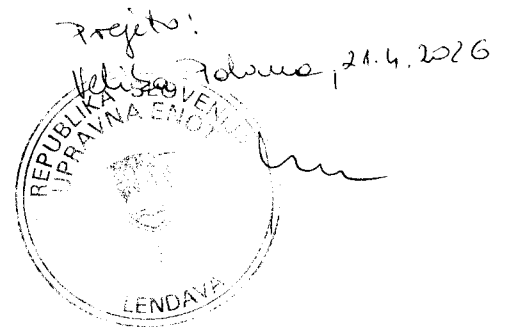 Prejeto:
Velika Polana, 21.4.2026
REPUBLIKA SLOVENIJA
UPRAVNA ENOTA
LENDAVA